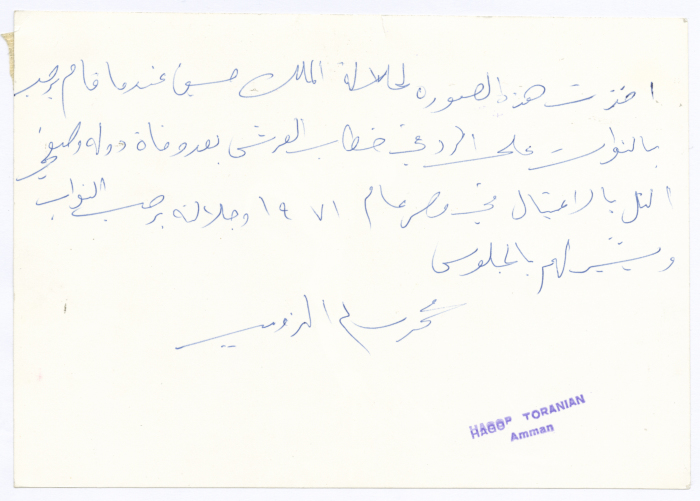 اخذت هذه الصوره لجلالة الملك حسين عندما قام يرحب
بالنواب على الرد في خطاب العرش بعد وفاة دوله وصفي
التل بالاغتيال في مصر عام ١٩٧١ وجلالته يرحب النواب
ويشير لهم بالجلوس
محمد سالم
HAGOP TORANIAN
Amman